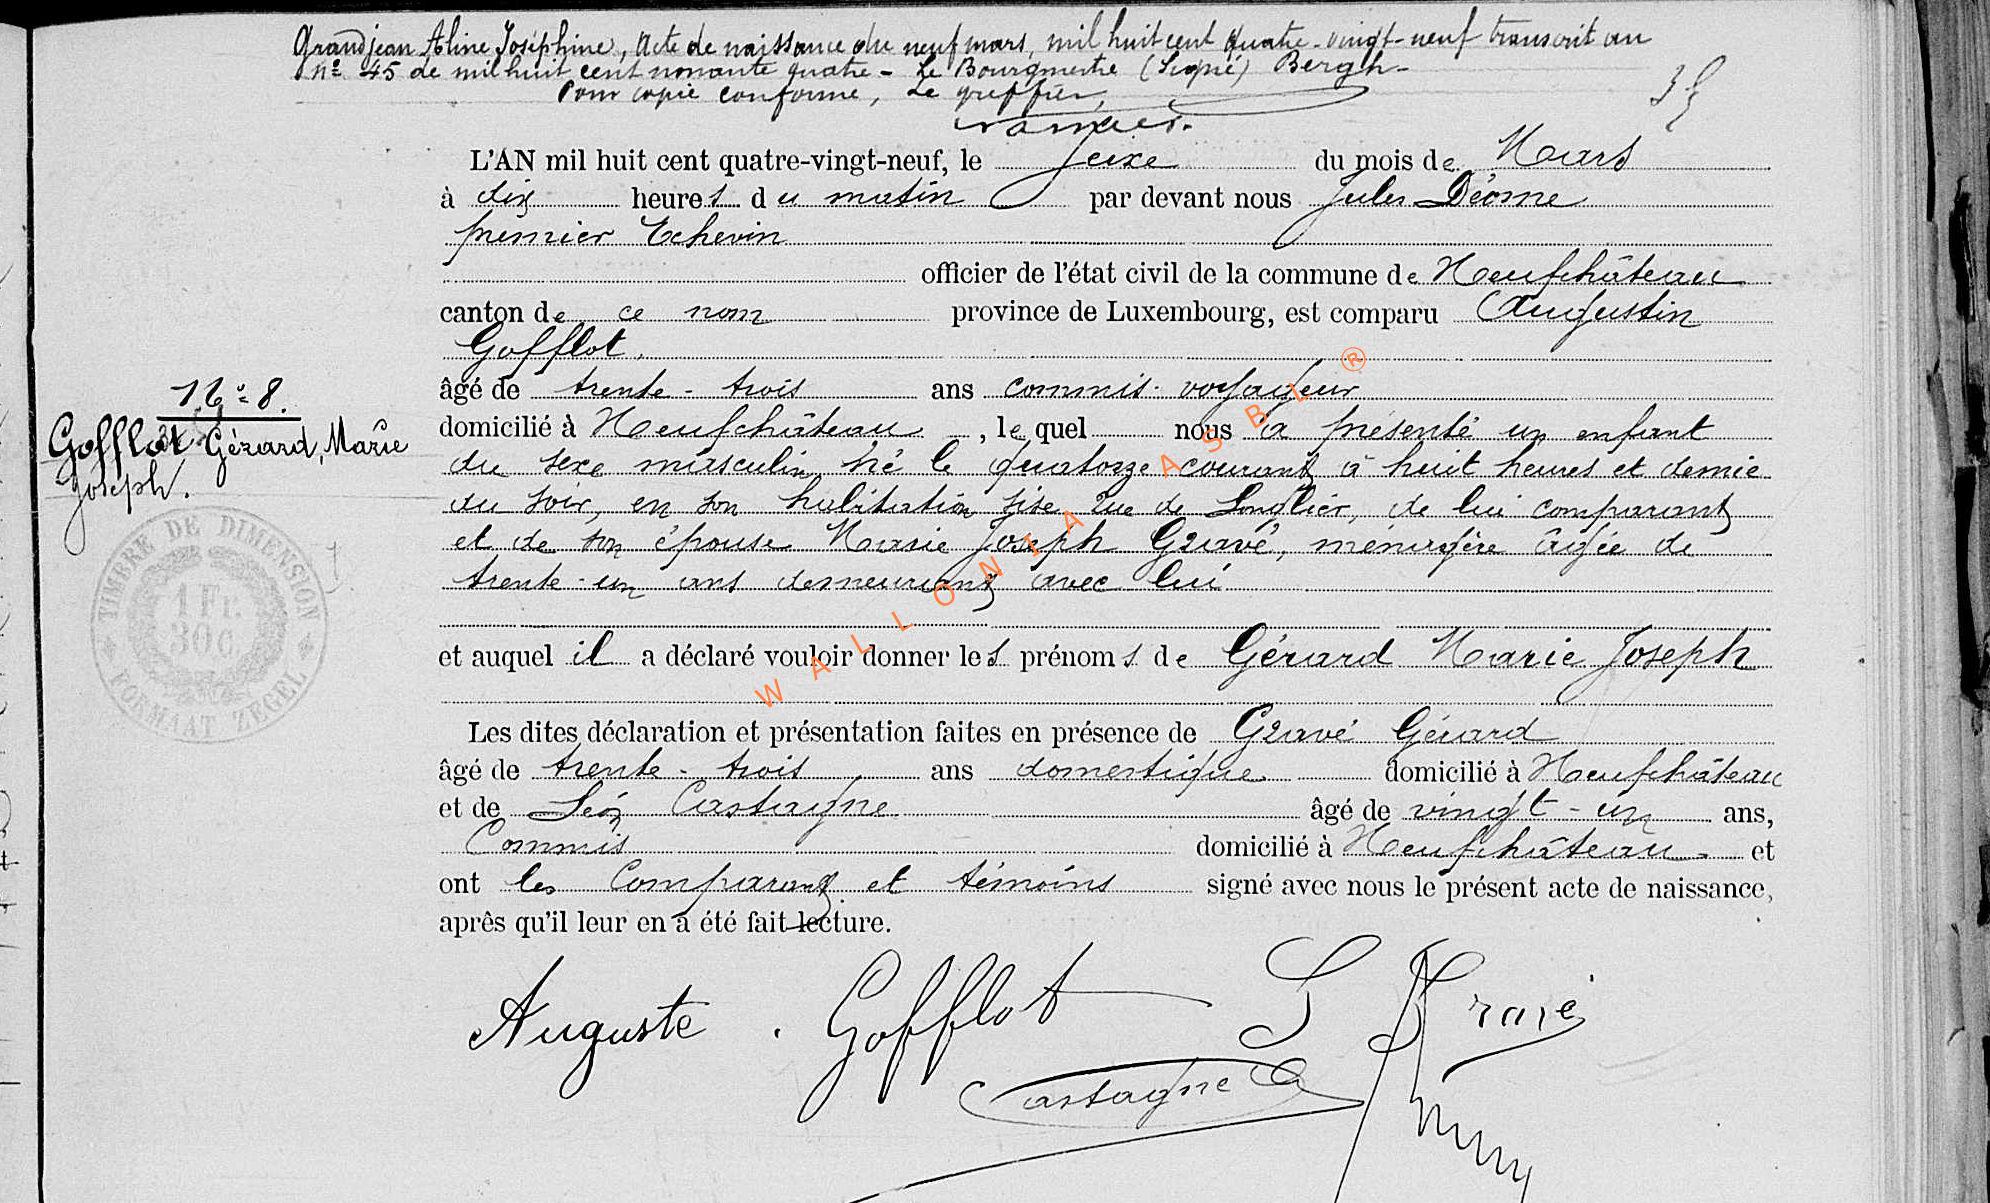 Grandjean Aline Joséphine, acte de naissance du neuf mars, mil huit cent quatre-vingt-neuf transcrit au
n° 45 de mil huit cent nonante quatre - Le Bourgmestre (Signé) Bergh -
Pour copie conforme, Le greffier,
L'AN mil huit cent quatre-vingt-neuf, le seize du mois de Mars
à dix heures du matin par devant nous Jules Déome
premier Echevin
officier de l'état civil de la commune de Neufchâteau
canton de ce nom province de Luxembourg, est comparu Augustin
Gofflot.
âgé de trente-trois ans commis-voyageur
domicilié à Neufchâteau, le quel nous a présenté un enfant
du sexe masculin, né le quatorze courant à huit heures et demie
du soir, en son habitation sise rue de Longlier, de lui comparant
et de son épouse Marie Joseph Gravé, ménagère âgée de
trente-un ans demeurant avec lui
et auquel il a déclaré vouloir donner les prénoms de Gérard Marie Joseph
Les dites déclaration et présentation faites en présence de Gravé Gérard
âgé de trente-trois ans domestique domicilié à Neufchâteau
et de Léon Castagne âgé de vingt-un ans,
Commis domicilié à Neufchâteau - et
ont les Comparant et témoins signé avec nous le présent acte de naissance,
après qu'il leur en a été fait lecture.
Auguste . Gofflot
Castagne
N° 8.
Gofflot Gérard, Marie
Joseph.
TIMBRE DE DIMENSION
1 Fr.
30 c.
FORMAAT ZEGEL
WALLONIA ASBL ®